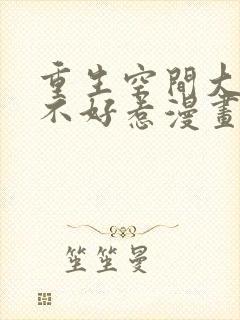 重生空間大
不好惹漫畫
笙笙曼